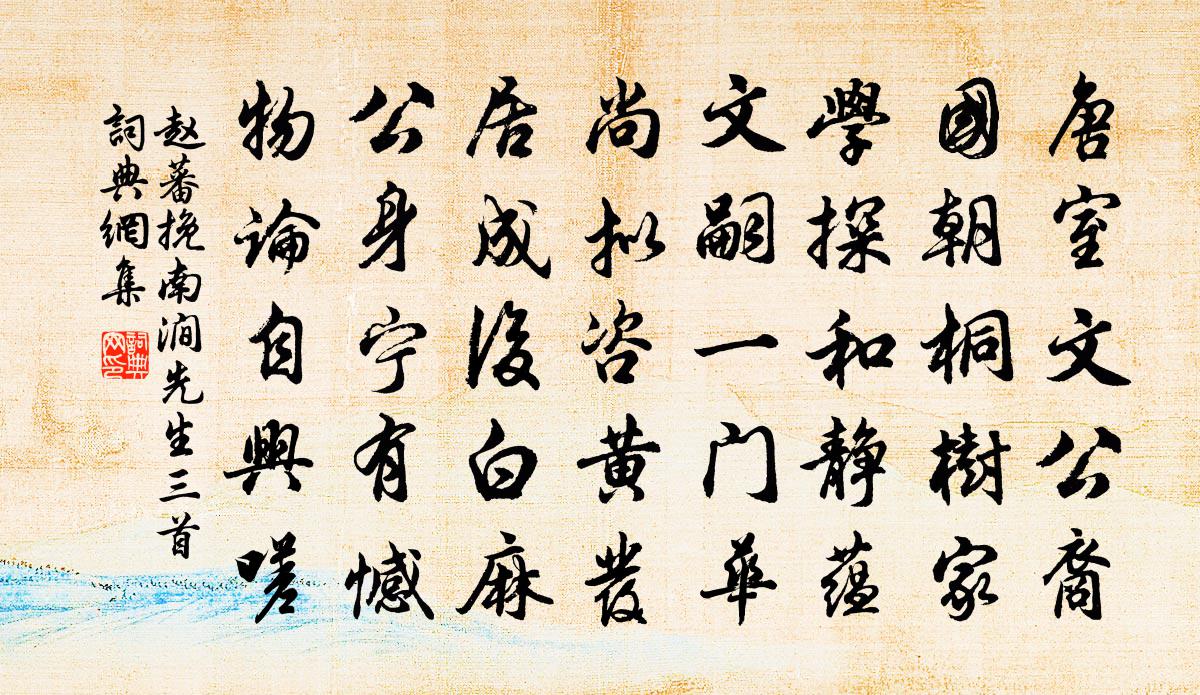 唐室文公裔
國朝桐樹家
學探和静蕴
文嗣一门華
尚拟咨黄發
居成後白麻
公身宁有憾
物論自興嗟
赵蕃挽南澗先生三首
詞典網集
詞典網印